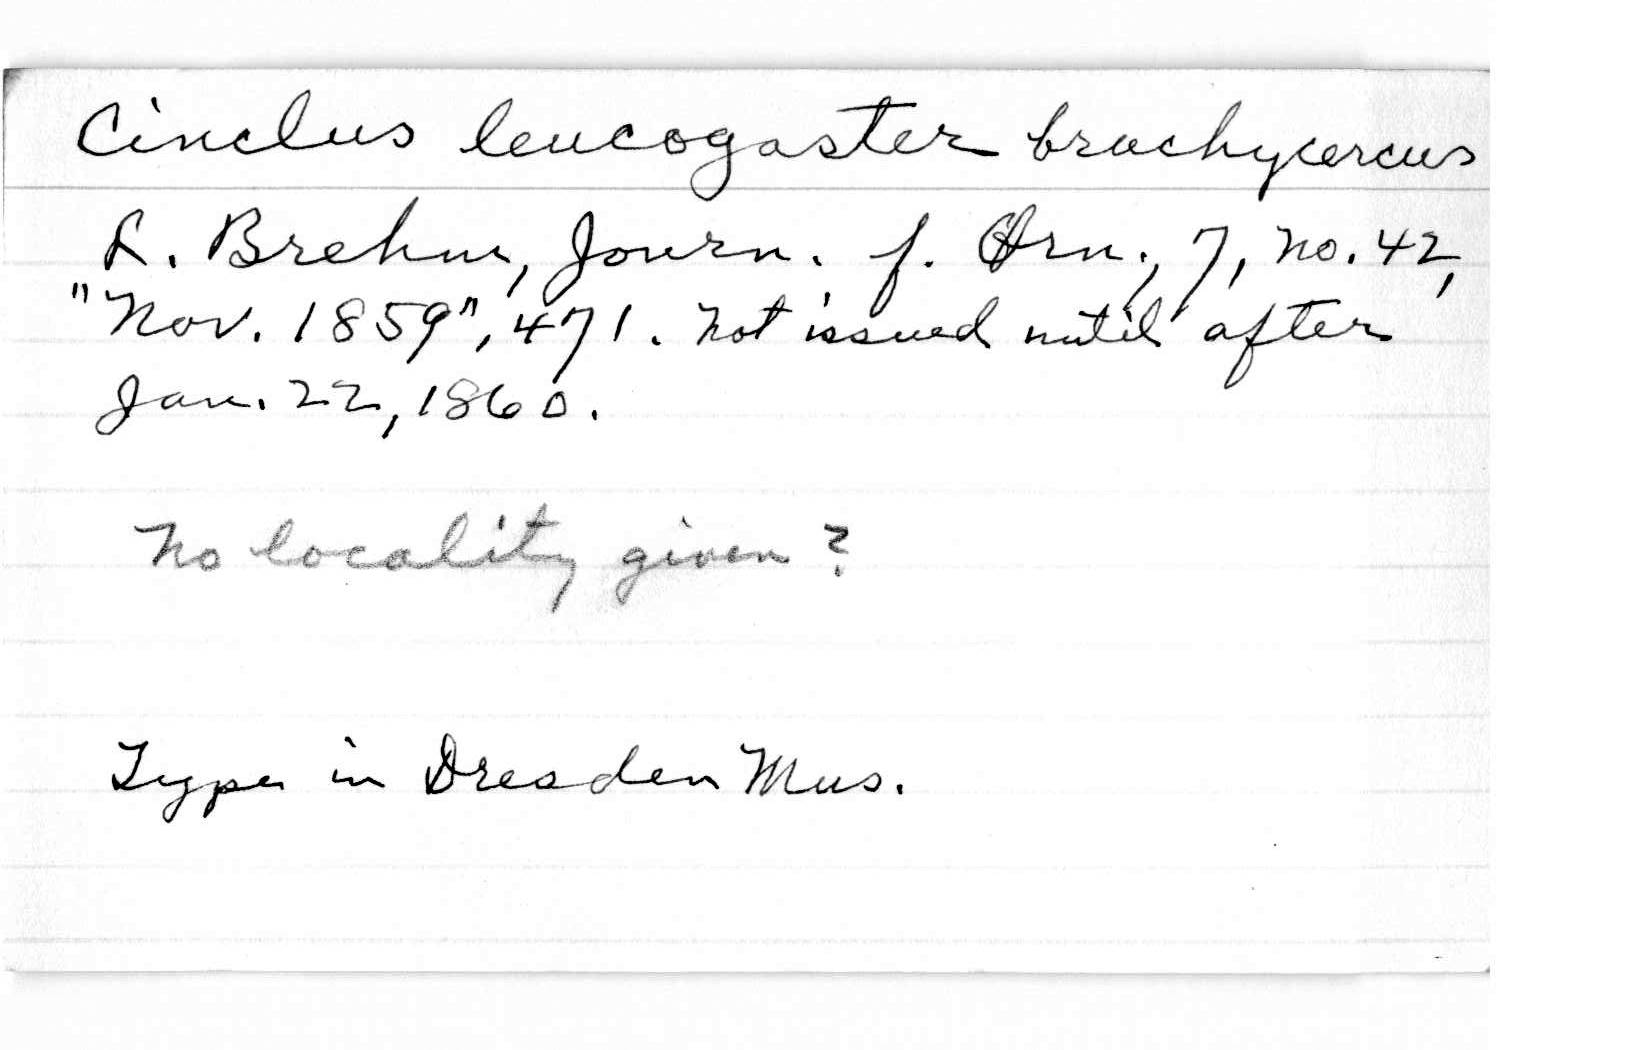 Cinclus leucogaster brachycercus
R. Brehm, Journ. f. Orn., 7, no. 42,
"Nov. 1859", 471. Not issued until after
Jan. 22, 1860.
No locality given?
Types in Dresden Mus.